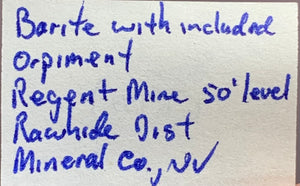 Barite with included
Orpiment
Regent Mine 50' level
Rawhide Dist
Mineral Co., NV